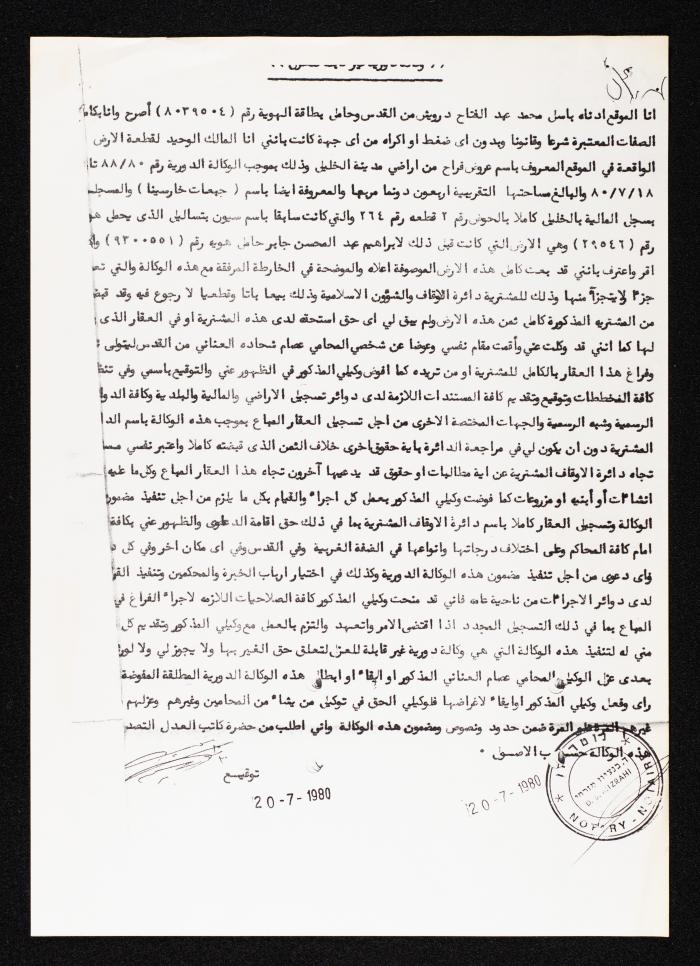 انا الموقع ادناه باسل محمد عبد الفتاح درويش من القدس وحامل بطاقة الهوية رقم ( ٨٠٣٩٥٠٤ ) أصرح وانا بكامل
الصفات المعتبرة شرعا وقانونا وبدون اى ضغط او اكراه من اى جهة كانت بانني انا المالك الوحيد لقطعة الارض
الواقعة في الموقع المعروف باسم عروض فراح من اراضي مدينة الخليل وذلك بموجب الوكالة الدورية رقم ٨٨/٨٠
٨٠/٧/١٨ والبالغ مساحتها التقريبية اربعون دونما مربعا والمعروفة ايضا باسم ( جبعات خارسينا ) والمسجلة
بسجل المالية بالخليل كاملا بالحوض رقم ٢ قطعه رقم ٢٦٤ والتي كانت سابقا باسم سيون بتساليل الذى يحمل
رقم ( ٢٩٥٤٦ ) وهي الارض التي كانت قبل ذلك لابراهيم عبد المحسن جابر حامل هويه رقم ( ٩٣٠٠٥٥١ )
اقر واعترف بانني قد بعت كامل هذه الارض الموصوفة اعلاه والموضحة في الخارطة المرفقة مع هذه الوكالة والتي
جزءا لايتجزأ منها وذلك للمشترية دائرة الاوقاف والشؤون الاسلامية وذلك بيعا باتا وقطعيا لا رجوع فيه وقد
من المشتريه المذكورة كامل ثمن هذه الارض ولم يبق لي اى حق استحقه لدى هذه المشترية او في العقار الذى
لها كما انني قد وكلت عني وأقمت مقام نفسي وعوضا عن شخصي المحامي عصام شحاده العناني من القدس ليتولى
وفراغ هذا العقار بالكامل للمشترية او من تريده كما افوض وكيلي المذكور في الظهور عني والتوقيع باسمي وفي
كافة المخططات وتوقيع وتقديم كافة المستندات اللازمة لدى دوائر تسجيل الاراضي والمالية والبلدية وكافة
الرسمية وشبه الرسمية والجهات المختصة الاخرى من اجل تسجيل العقار المباع بموجب هذه الوكالة باسم
المشترية دون ان يكون لي في مراجعة الدائرة باية حقوق اخرى خلاف الثمن الذى قبضته كاملا واعتبر نفسي
تجاه دائرة الاوقاف المشترية عن اية مطالبات او حقوق قد يدعيها آخرون تجاه هذا العقار المباع وكل ما عليه
انشاءات أو أبنيه او مزروعات كما فوضت وكيلي المذكور بعمل كل اجراء والقيام بكل ما يلزم من اجل تنفيذ مضمون
الوكالة وتسجيل العقار كاملا باسم دائرة الاوقاف المشترية بما في ذلك حق اقامة الدعاوى والظهور عني بكافة
امام كافة المحاكم وعلى اختلاف درجاتها وانواعها في الضفة الغربية وفي القدس وفي اى مكان اخر وفي كل
واى دعوى من اجل تنفيذ مضمون هذه الوكالة الدورية وكذلك في اختيار ارباب الخبرة والمحكمين وتنفيذ
لدى دوائر الاجراءات من ناحية عامه فاني قد منحت وكيلي المذكور كافة الصلاحيات اللازمه لاجراء الفراغ في
المباع بما في ذلك التسجيل المجدد اذا اقتضى الامر واتعهد والتزم بالعمل مع وكيلي المذكور وتقديم كل
مني له لتنفيذ هذه الوكالة التي هي وكالة دورية غير قابلة للعزل لتعلق حق الغير بها ولا يجوز لي ولا
بعدى عزل الوكيل المحامي عصام العناني المذكور او ابقاء او ابطال هذه الوكالة الدورية المطلقة المفوضة
راى وفعل وكيلي المذكور وايفاء لاغراضها فلوكيلي الحق في توكيل من يشاء من المحامين وغيرهم وعزلهم
غيرهم المرة تلو المرة ضمن حدود ونصوص ومضمون هذه الوكالة واني اطلب من حضرة كاتب العدل
هذه الوكالة حسب الاصول .
توقيع
20-7-1980
20-7-1980
NOTARY - NOTAIRE
MIZRAHI